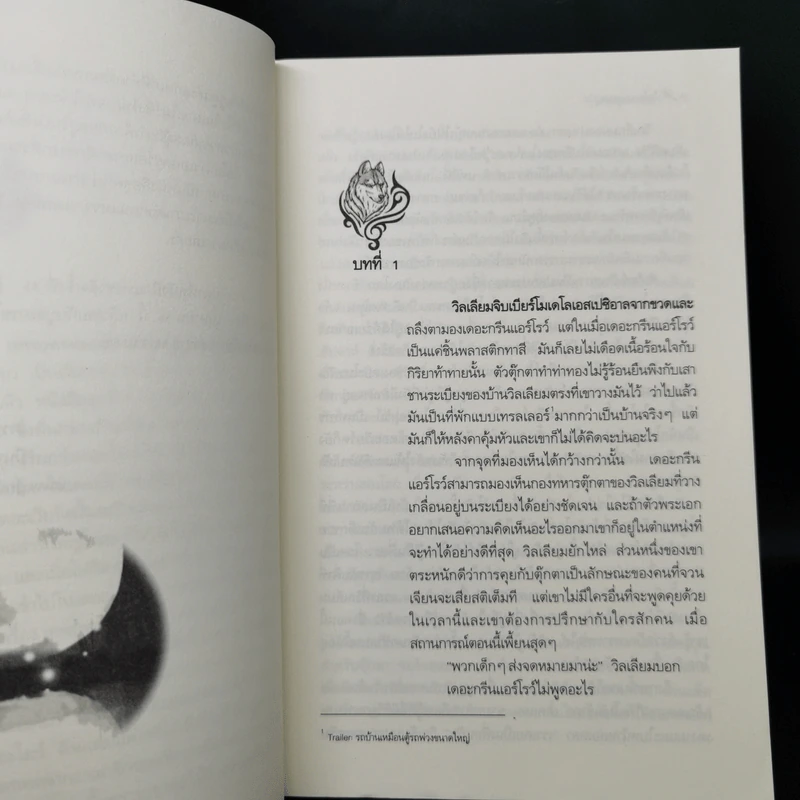 บทที่ 1
วิลเลียมจิบเบียร์โมเดโลเอสเปซิอาลจากขวดและ
ถลึงตามองเดอะกรีนแอร์โรว์ แต่ในเมื่อเดอะกรีนแอร์โรว์
เป็นแค่ชิ้นพลาสติกทาสี มันก็เลยไม่เดือดเนื้อร้อนใจกับ
กิริยาท้าทายนั้น ตัวตุ๊กตาทำท่าทองไม่รู้ร้อนยืนพิงกับเสา
ชานระเบียงของบ้านวิลเลียมตรงที่เขาวางมันไว้ ว่าไปแล้ว
มันเป็นที่พักแบบเทรลเลอร์1มากกว่าเป็นบ้านจริงๆ แต่
มันก็ให้หลังคาคุ้มหัวและเขาก็ไม่ได้คิดจะบ่นอะไร
จากจุดที่มองเห็นได้กว้างกว่านั้น เดอะกรีน
แอร์โรว์สามารถมองเห็นกองทหารตุ๊กตาของวิลเลียมที่วาง
เกลื่อนอยู่บนระเบียงได้อย่างชัดเจน และถ้าตัวพระเอก
อยากเสนอความคิดเห็นอะไรออกมาเขาก็อยู่ในตำแหน่งที่
จะทำได้อย่างดีที่สุด วิลเลียมยักไหล่ ส่วนหนึ่งของเขา
ตระหนักดีว่าการคุยกับตุ๊กตาเป็นลักษณะของคนที่จวน
เจียนจะเสียสติเต็มที แต่เขาไม่มีใครอื่นที่จะพูดคุยด้วย
ในเวลานี้และเขาต้องการปรึกษากับใครสักคน เมื่อ
สถานการณ์ตอนนี้เพี้ยนสุดๆ
“พวกเด็กๆ ส่งจดหมายมาน่ะ” วิลเลียมบอก
เดอะกรีนแอร์โรว์ไม่พูดอะไร
1 Trailer: รถบ้านเหมือนตู้รถพ่วงขนาดใหญ่